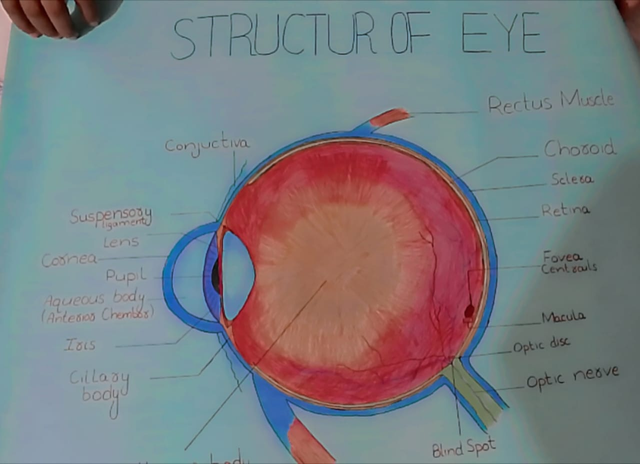 STRUCTUR OF EYE
Rectus Muscle
Conjuctiva
Choroid
Sclera
Retina
Suspensory
ligaments
Lens
Cornea
Pupil
Aqueous body
(Anterior Chember)
Iris
Cillary
body
Fovea
Centrals
Macula
Optic disc
Optic nerve
Blind Spot
body